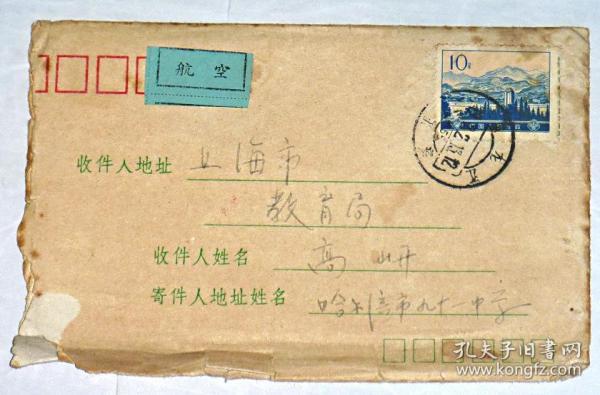 航 空
10分
收件人地址 上海市
教育局
收件人姓名 高 岍
寄件人地址姓名 哈尔滨市九十一中学
孔夫子旧書网
www.kongfz.com